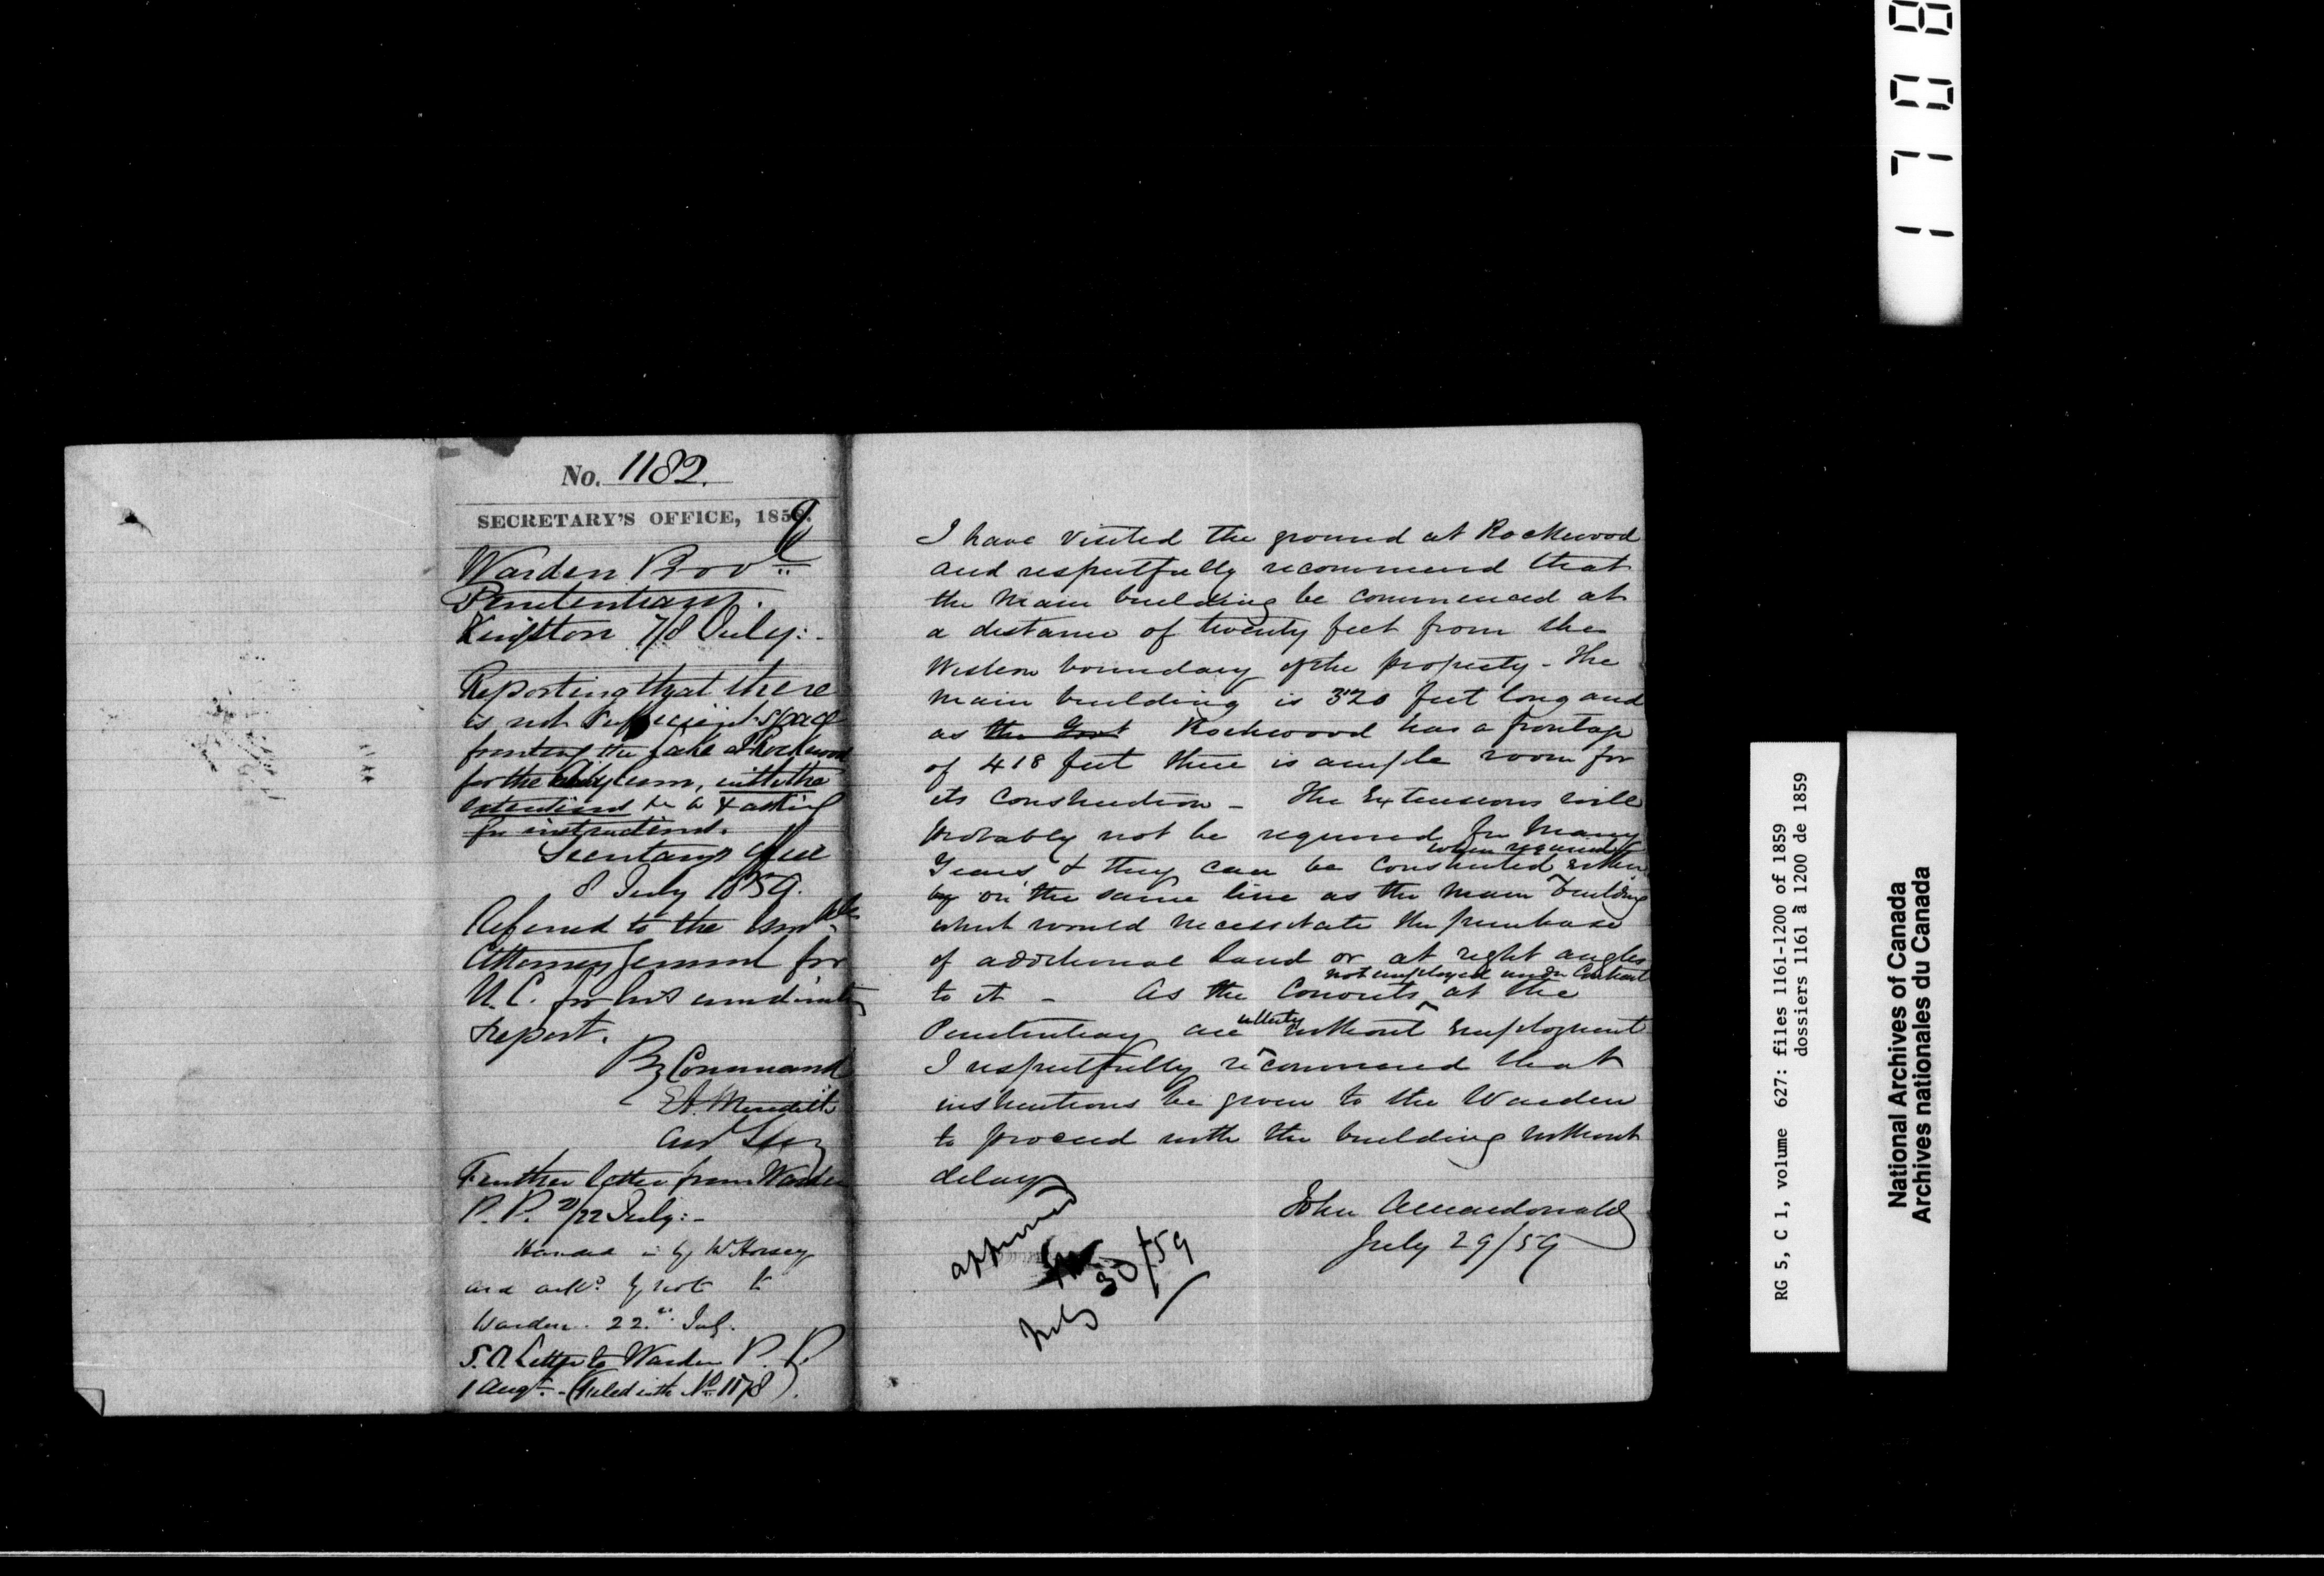 No. 1182.
SECRETARY'S OFFICE, 1859.
Warden Provl
Penitentiary.
Kingston 7/8 July:-
Reporting that there
is not sufficient space
fronting the Lake at Rockwood
for the Asylum, with the
extensions & asking
for instructions.
Secretary's Office
8 July 1859.
Referred to the Honble
Attorney General for
U.C. for his immediate
report.
By Command
E A Meredith
Asst Secy
Further letter from Warden
P.P. 21/22 July:-
Handed in by W Horsey
and ackd by note to
Warden. 22nd July.
S.O. Letter to Warden P.P.
1 Augt - (Filed with No 1178).
I have visited the ground at Rockwood
and respectfully recommend that
the Main building be commenced at
a distance of twenty feet from the
Western boundary of the property - The
Main building is 320 feet long and
as the Govt Rockwood has a frontage
of 418 feet there is ample room for
its construction - The Extensions will
probably not be required for Many
when required
Years & they can be constructed either
by on the same line as the Main building
which would necessitate the purchase
of additional land or at right angles
not employed under Contract
to it - As the Convicts at the
utterly
Penitentiary are without employment
I respectfully recommend that
instructions be given to the Warden
to proceed with the building without
delay
John A Macdonald
July 29/59
approved
July 30/59
1708
RG 5, C 1, volume 627: files 1161-1200 of 1859
dossiers 1161 à 1200 de 1859
National Archives of Canada
Archives nationales du Canada